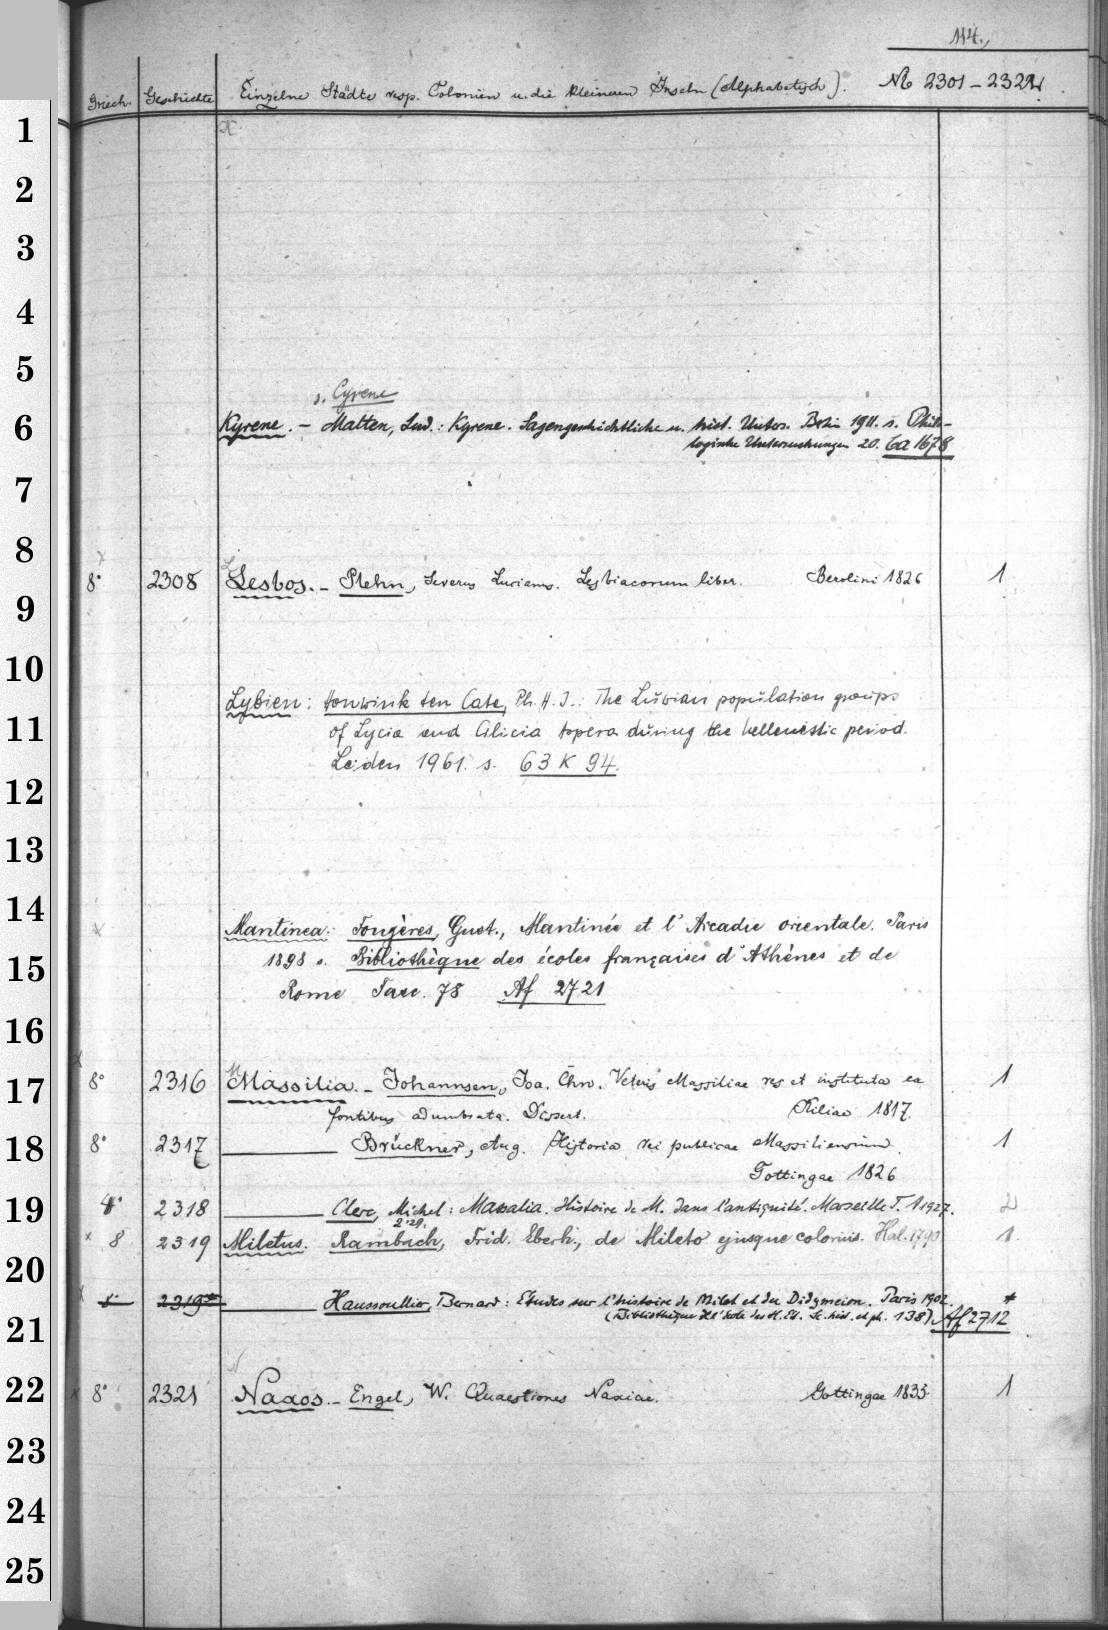 114.
Griech. Geschichte Einzelne Städte resp. Colonien u. die kleineren Inseln (Alphabetisch). № 2301 – 2322
1
2
3
4
5
s. Cyrene
6 Kyrene. – Malten, Lud.: Kyrene. Sagengeschichtliche u. hist. Unters. Berlin 1911. s. Philo-
logische Untersuchungen 20. Ca 1678
7
8
8° 2308 Lesbos. – Plehn, Severus Lucianus. Lesbiacorum liber. Berolini 1826 1
9
10
Lybien: Houwink ten Cate, Ph. H. J.: The Luwian population groups
11 of Lycia and Cilicia aspera during the hellenistic period.
Leiden 1961. s. 63 K 94.
12
13
14
Mantinea: Fougères, Gust., Mantinée et l'Arcadie orientale. Paris
15 1898 s. Bibliothèque des écoles françaises d'Athènes et de
Rome Fasc. 78 Af 2721
16
17 8° 2316 Massilia. – Johannsen, Joa. Chr. Veteris Massiliae res et instituta ex
fontibus adumbrata. Dissert. Kiliae 1817. 1
18 8° 2317 Brückner, Aug. Historia rei publicae Massiliensium.
Gottingae 1826 1
19 4° 2318 Clerc, Michel: Massalia. Histoire de M. dans l'antiquité. Marseille T. 1 1927. 2
2 '29.
8 2319 Miletus. Rambach, Frid. Eberh., de Mileto ejusque coloniis. Hal. 1790 1
20
Haussoullier, Bernard: Etudes sur l'histoire de Milet et du Didymeion. Paris 1902. *
21 (Bibliothèque de l'école des H. Et. Sc. hist. et ph. 138) Af 2712
22 8° 2321 Naxos. – Engel, W. Quaestiones Naxiae. Gottingae 1835 1
23
24
25